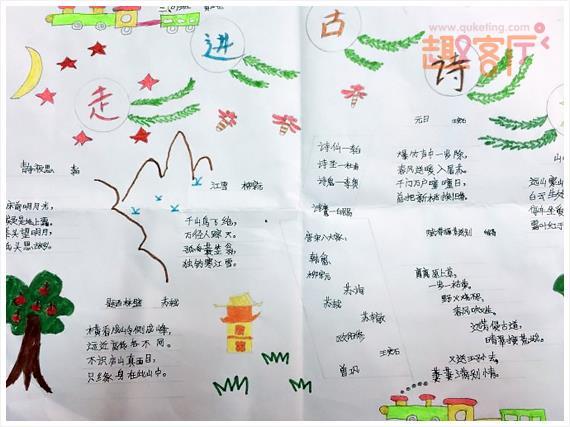 www.quketing.com
趣客厅
走进古诗
静夜思
床前明月光,
疑是地上霜。
举头望明月,
江雪 柳宗元
千山鸟飞绝,
万径人踪灭。
独钓寒江雪。
题西林壁 苏轼
横看成岭侧成峰,
远近高低各不同。
不识庐山真面目,
只缘身在此山中。
诗仙—李白
诗圣—杜甫
诗鬼—李贺
诗魔—白居易
唐宋八大家:
韩愈
柳宗元
苏洵
苏轼
苏辙
欧阳修
王安石
曾巩
元日 王安石
爆竹声中一岁除,
春风送暖入屠苏。
千门万户曈曈日,
总把新桃换旧符。
一岁一枯荣。
野火烧不尽,
春风吹又生。
远芳侵古道,
晴翠接荒城。
又送王孙去,
萋萋满别情。
远上寒山
白云生处
停车坐爱
霜叶红于